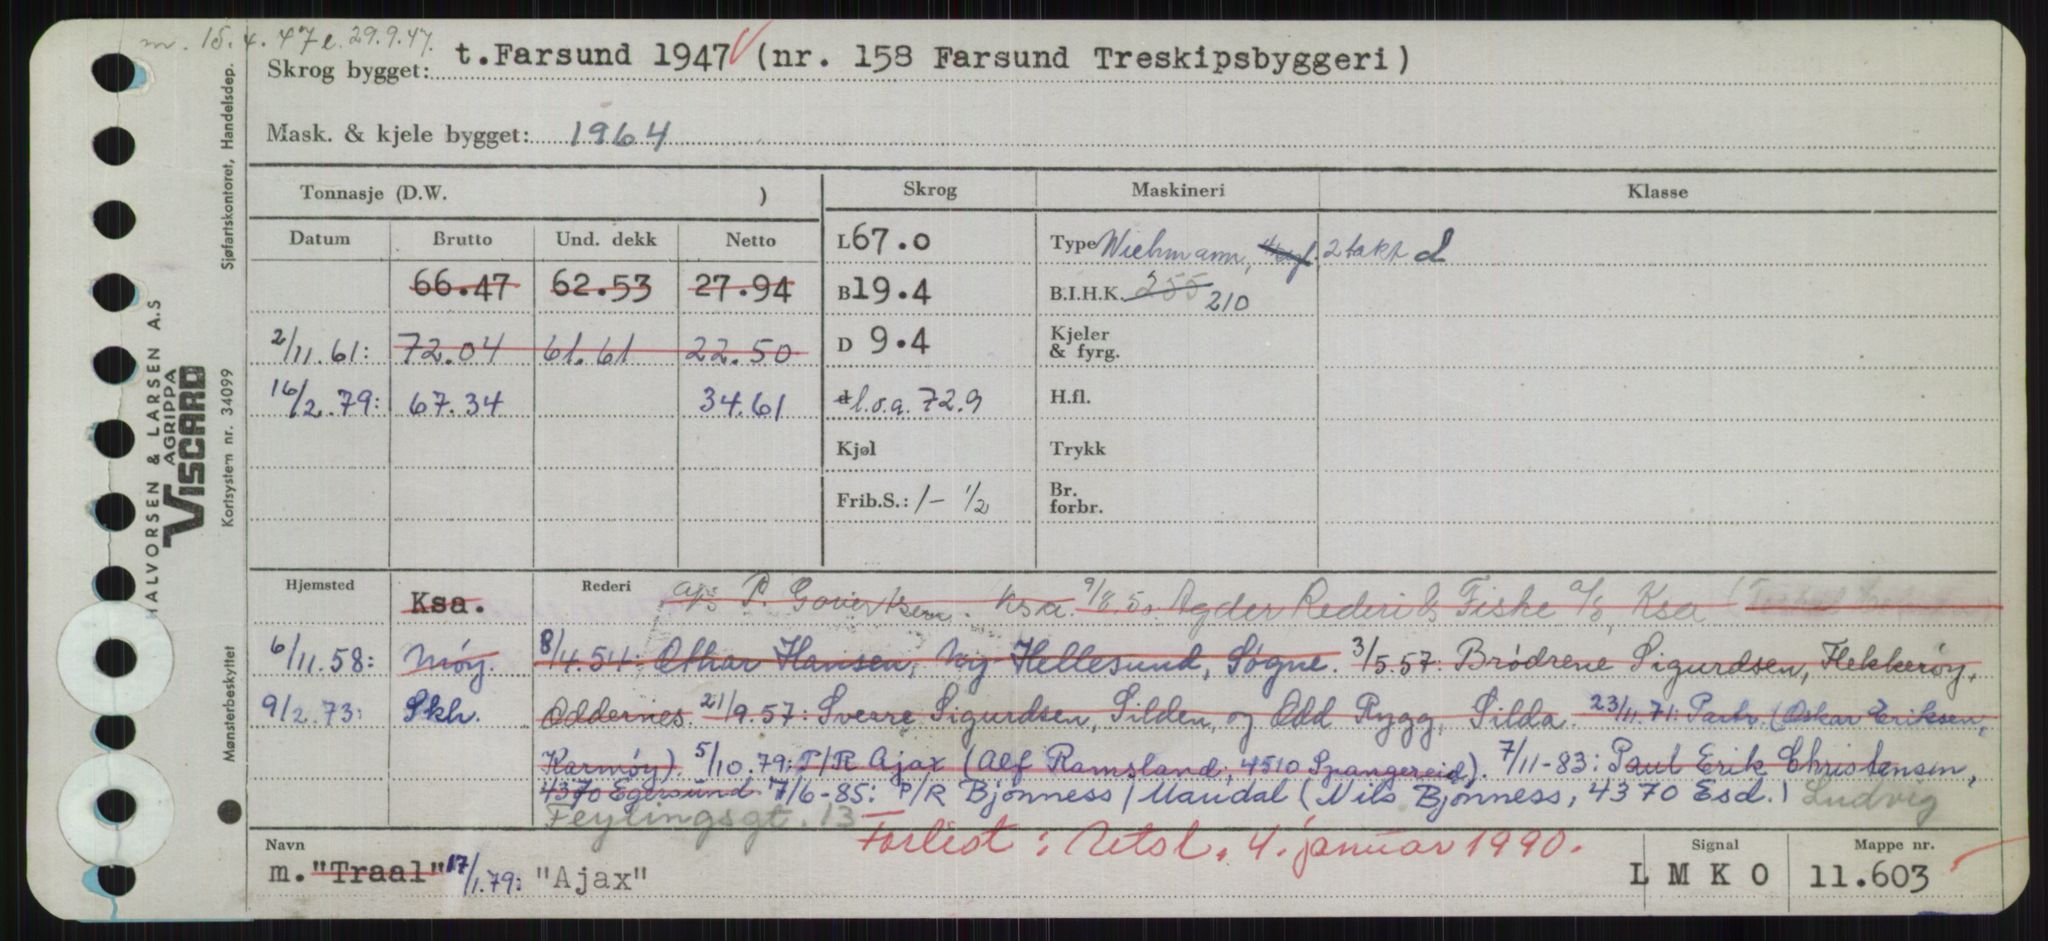 m. 15.4.47 l. 29.9.47.
Skrog bygget: t.Farsund 1947 (nr. 158 Farsund Treskipsbyggeri)
Mask. & kjele bygget: 1964
Tonnasje (D.W. ) Skrog Maskineri Klasse
Datum Brutto Und. dekk Netto L 67.0 Type Wichmann, 2 takt d
66.47 62.53 27.94 B 19.4 B.I.H.K. 255 210
2/11.61: 72.04 61.61 22.50 D 9.4 Kjeler & fyrg.
16/2.79: 67.34 34.61 d l.o.a. 72.9 H.fl.
Kjøl Trykk
Frib.S.: 1- 1/2 Br. forbr.
Hjemsted Ksa. Rederi A/S P. Goverksen. Ksa. 9/8.50. Agder Rederi & Fiske A/S, Ksa
6/11.58: Møy. 8/4.54: Othar Hansen, Ny-Hellesund, Søgne. 3/5.57: Brødrene Sigurdsen, Flekkerøy,
9/2.73: Skh. Oddernes. 21/9.57: Sverre Sigurdsen, Silden, og Odd Rygg, Silda. 23/11.71: Partr. (Oskar Eriksen,
Karmøy). 5/10.79: P/R Ajax (Alf Ramsland, 4510 Spangereid). 7/11-83: Paul Erik Christensen,
4370 Egersund 7/6-85: P/R Bjønness/Maudal (Nils Bjønness, 4370 Esd.) Ludvig
Feylingsgt. 13
Forlist: Utsl. 4. januar 1990.
Navn Signal Mappe nr.
m. "Traal" 17/1.79: "Ajax" L M K O 11.603
HALVORSEN & LARSEN A.S
AGRIPPA
VISCARD
Sjøfartskontoret, Handelsdep.
Kortsystem nr. 34099
Mønsterbeskyttet